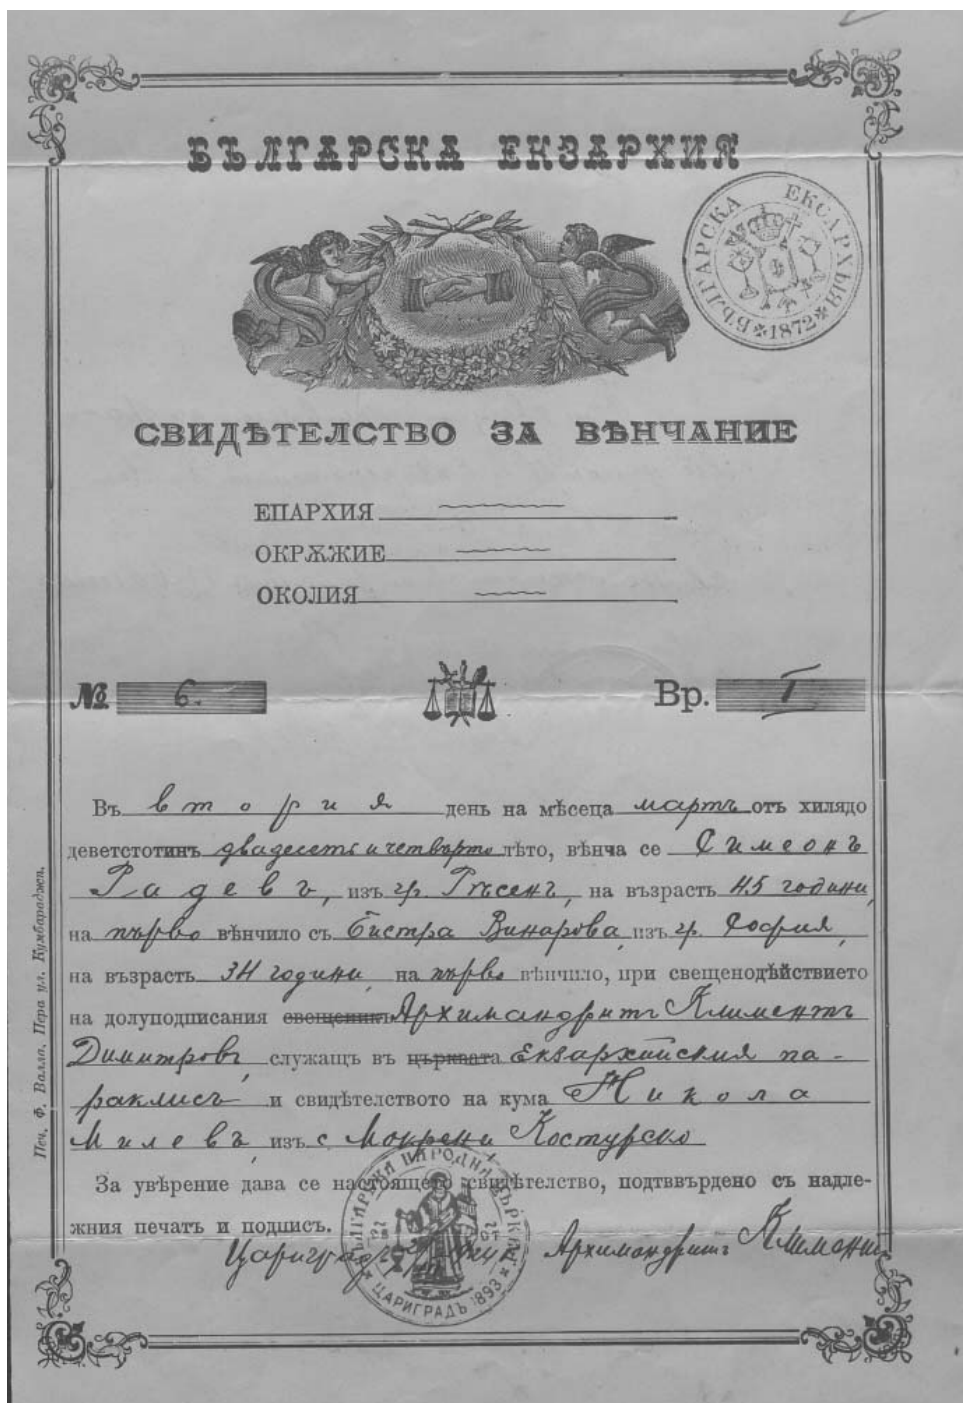 БЪЛГАРСКА ЕКЗАРХИЯ
БЪЛГАРСКА ЕКСАРХЫЯ
1872
СВИДѢТЕЛСТВО ЗА ВѢНЧАНИЕ
ЕПАРХИЯ
ОКРѪЖИЕ
ОКОЛИЯ
№ 6. Вр. I
Въ втория день на мѣсеца мартъ отъ хилядо
деветстотинъ двадесеть и четвърто лѣто, вѣнча се Симеонъ
Радевъ, изъ гр. Ресенъ, на възрасть 45 години,
на първо вѣнчило съ Бистра Винарова, изъ гр. София,
на възрасть 34 години, на първо вѣнчило, при свещенодѣйствието
на долуподписания свещеникъ Архимандритъ Климентъ
Димитровъ, служащъ въ църквата Екзархийския па-
раклисъ и свидѣтелството на кума Никола
Милевъ, изъ с. Мокрени Костурско
За увѣрение дава се настоящето свидѣтелство, подтввърдено съ надле-
жния печатъ и подписъ.
Цариградъ Архимандритъ Климентъ
БЪЛГАРСКА НАРОДНА ЦЪРКВА
ЦАРИГРАДЪ 1893
Печ. Ф. Валла, Пера ул. Кумбараджи.